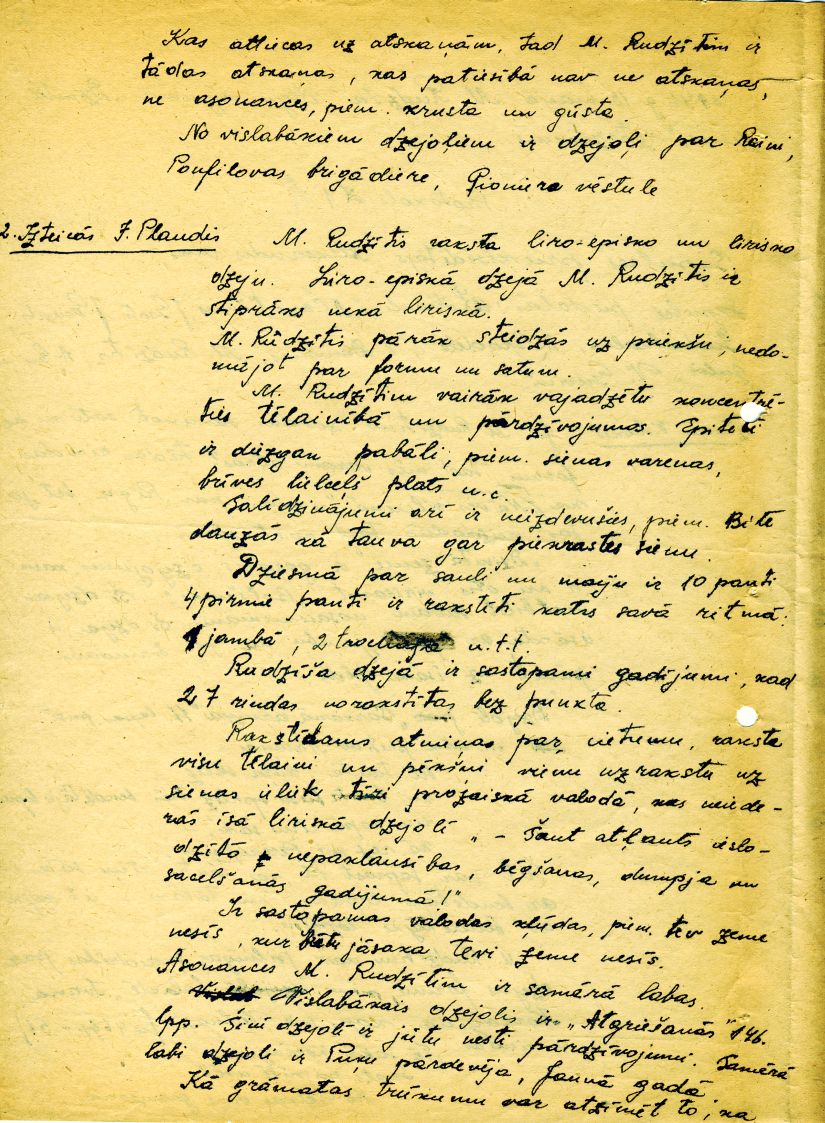 Kas attiecas uz atskaņām, tad M. Rudzītim ir
tādas atskaņas, kas patiesībā nav ne atskaņas,
ne asonances, piem. krusta un gūsta.
No vislabākiem dzejoļiem ir dzejoļi par Raini,
Panfilovas brigādiere, Pioniera vēstule
2. Izteicās J. Plaudis
M. Rudzītis raksta liro-episko un lirisko
dzeju. Liro-episkā dzejā M. Rudzītis ir
stiprāks nekā liriskā.
M. Rūdzītis pārāk steidzās uz priekšu, nedo-
mājot par formu un saturu.
M. Rudzītim vairāk vajadzētu koncentrē-
ties tēlainībā un pārdzīvojumos. Epiteti
ir diezgan pabāli, piem. sienas varenas,
brīves lielceļš plats u.c.
Salīdzinājumi arī ir neizdevušies, piem. Bite
dauzās kā tauva gar piekrastes sienu.
Dziesmā par sauli un maiju ir 10 panti
4 pirmie panti ir rakstīti katrs savā ritmā.
1 jambā, 2 u.t.t.
Rudzīša dzejā ir sastopami gadījumi, kad
27 rindas norakstītas bez punkta.
Rakstīdams atmiņas par cietumu, raksta
visu tēlaini un pēkšņi vienu uzrakstu uz
sienas ieliek prozaiskā valodā, kas neiede-
rās īsā liriskā dzejolī „ – Šaut atļauts ieslo-
dzīto nepaklausības, bēgšanas, dumpja un
sacelšanās gadījumā!"
Ir sastopamas valodas kļūdas, piem. tev zeme
nesīs, kur jāsaka tevi zeme nesīs.
Asonances M. Rudzītim ir samērā labas.
Vislabākais dzejolis ir „Atgriešanās" 146.
lpp. Šinī dzejolī ir jūtu nesti pārdzīvojumi. Samērā
labi dzejoli ir Puķu pārdevēja, Jaunā gadā
Kā grāmatas trūkumu var atzīmēt to, ka